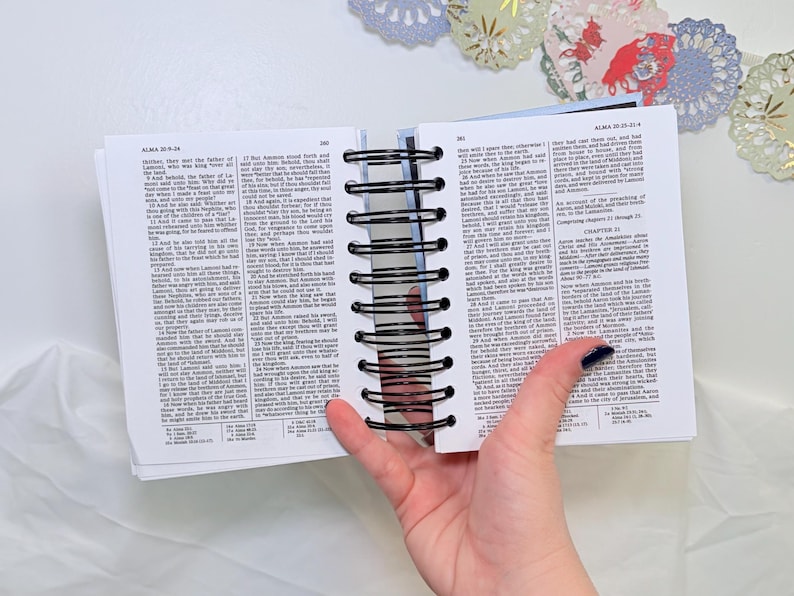 ALMA 20:9–24
260
thither, they met the father of
Lamoni, who was king over all
the land.
9 And behold, the father of La-
moni said unto him: Why did ye
not come to the feast on that great
day when I made a feast unto my
sons, and unto my people?
10 And he also said: Whither art
thou going with this Nephite, who
is one of the children of a liar?
11 And it came to pass that La-
moni rehearsed unto him whither
he was going, for he feared to offend
him.
12 And he also told him all the
cause of his tarrying in his own
kingdom, that he did not go unto
his father to the feast which he had
prepared.
13 And now when Lamoni had re-
hearsed unto him all these things,
behold, to his astonishment, his
father was angry with him, and said:
Lamoni, thou art going to deliver
these Nephites, who are sons of a
liar. Behold, he robbed our fathers;
and now his children are also come
amongst us that they may, by their
cunning and their lyings, deceive
us, that they again may rob us of
our property.
14 Now the father of Lamoni com-
manded him that he should slay
Ammon with the sword. And he
also commanded him that he should
not go to the land of Middoni, but
that he should return with him to
the land of Ishmael.
15 But Lamoni said unto him: I
will not slay Ammon, neither will
I return to the land of Ishmael, but
I go to the land of Middoni that I
may release the brethren of Ammon,
for I know that they are just men
and holy prophets of the true God.
16 Now when his father had heard
these words, he was angry with
him, and he drew his sword that he
might smite him to the earth.
17 But Ammon stood forth and
said unto him: Behold, thou shalt
not slay thy son; nevertheless, it
were better that he should fall than
thee, for behold, he has repented
of his sins; but if thou shouldst fall
at this time, in thine anger, thy soul
could not be saved.
18 And again, it is expedient that
thou shouldst forbear; for if thou
shouldst slay thy son, he being an
innocent man, his blood would cry
from the ground to the Lord his
God, for vengeance to come upon
thee; and perhaps thou wouldst
lose thy soul.
19 Now when Ammon had said
these words unto him, he answered
him, saying: I know that if I should
slay my son, that I should shed in-
nocent blood; for it is thou that hast
sought to destroy him.
20 And he stretched forth his hand
to slay Ammon. But Ammon with-
stood his blows, and also smote his
arm that he could not use it.
21 Now when the king saw that
Ammon could slay him, he began
to plead with Ammon that he would
spare his life.
22 But Ammon raised his sword,
and said unto him: Behold, I will
smite thee except thou wilt grant
unto me that my brethren may be
cast out of prison.
23 Now the king, fearing he should
lose his life, said: If thou wilt spare
me I will grant unto thee whatso-
ever thou wilt ask, even to half of
the kingdom.
24 Now when Ammon saw that he
had wrought upon the old king ac-
cording to his desire, he said unto
him: If thou wilt grant that my
brethren may be cast out of prison,
and also that Lamoni may retain his
kingdom, and that ye be not dis-
pleased with him, but grant that he
may do according to his own
in whatsoever thing he
261
ALMA 20:25–21:4
then will I spare thee; otherwise I
will smite thee to the earth.
25 Now when Ammon had said
these words, the king began to re-
joice because of his life.
26 And when he saw that Ammon
had no desire to destroy him, and
when he also saw the great love
he had for his son Lamoni, he was
astonished exceedingly, and said:
Because this is all that thou hast
desired, that I would release thy
brethren, and suffer that my son
Lamoni should retain his kingdom,
behold, I will grant unto you that
my son may retain his kingdom
from this time and forever; and I
will govern him no more—
27 And I will also grant unto thee
that thy brethren may be cast out
of prison, and thou and thy breth-
ren may come unto me, in my king-
dom; for I shall greatly desire to see
thee. For the king was greatly
astonished at the words which he
had spoken, and also at the words
which had been spoken by his son
Lamoni, therefore he was desirous to
learn them.
28 And it came to pass that Am-
mon and Lamoni proceeded on
their journey towards the land of
Middoni. And Lamoni found favor
in the eyes of the king of the land;
therefore the brethren of Ammon
were brought forth out of prison.
29 And when Ammon did meet
them he was exceedingly sorrowful,
for behold they were naked, and
their skins were worn exceedingly
because of being bound
they had cast them out, and had
smitten them, and had driven them
from house to house, and from
place to place, even until they had
arrived in the land of Middoni; and
there they were taken and cast into
prison, and bound with strong
cords, and kept in prison for many
days, and were delivered by Lamoni
and Ammon.
An account of the preaching of
Aaron, and Muloki, and their breth-
ren, to the Lamanites.
Comprising chapters 21 through 25.
CHAPTER 21
Aaron teaches the Amalekites about
Christ and His Atonement—Aaron
and his brethren are imprisoned in
Middoni—After their deliverance, they
teach in the synagogues and make many
converts—Lamoni grants religious free-
dom to the people in the land of Ishmael.
Now when Ammon and his breth-
ren separated themselves in the
borders of the land of the Lamanites,
behold Aaron took his journey
towards the land which was called
by the Lamanites, Jerusalem, call-
ing it after the land of their fathers'
nativity; and it was away joining
the borders of Mormon.
2 Now the Lamanites and the
4 And it came to pass that Aaron
came to the city of Jerusalem, and